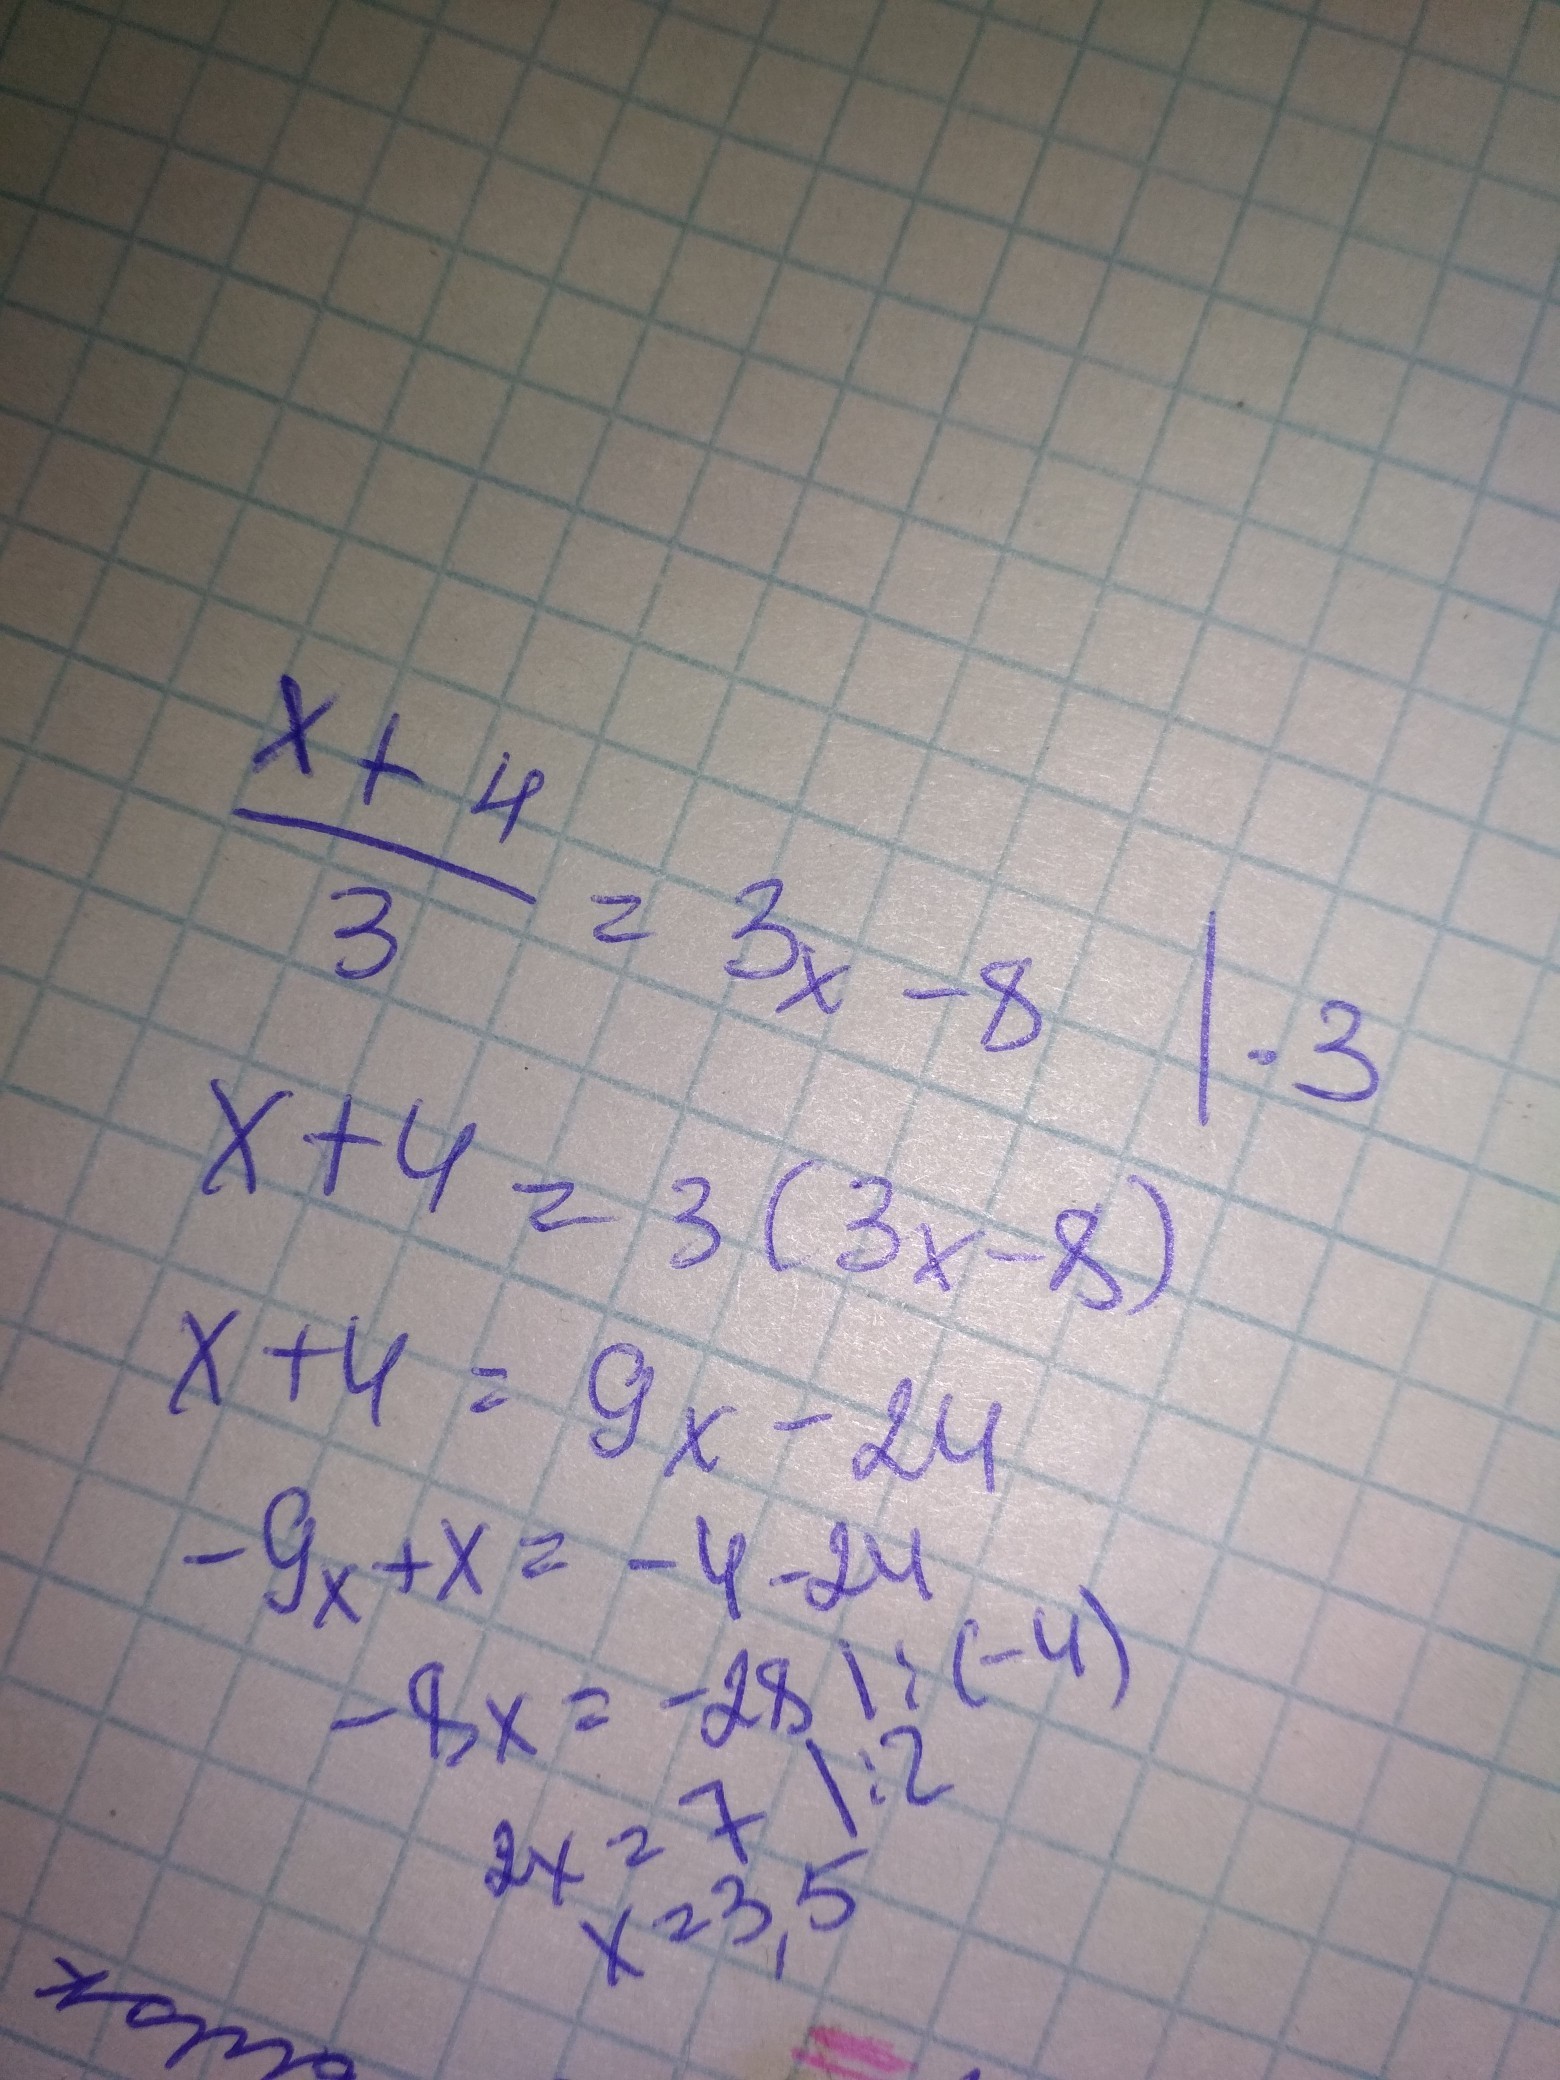 x + 4
3
= 3x - 8 | · 3
x + 4 = 3 (3x - 8)
x + 4 = 9x - 24
- 9x + x = - 4 - 24
- 8x = - 28 | : (- 4)
2x = 7 | : 2
x = 3,5